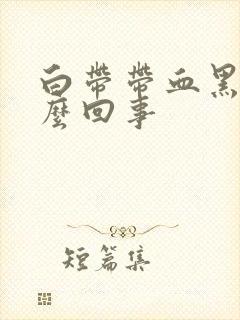 白帶帶血黑
麼回事
短篇集